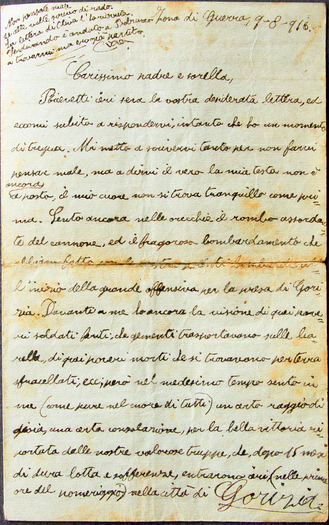 Non posso male
Zona di Guerra, 9-8-916.
Carissimo padre e sorella,
ieri sera la vostra desiderata lettera, ed
eccomi subito a rispondervi, intanto che ho un momento
di tregua. Mi metto a scrivervi tanto per non farvi
pensar male, ma a dirvi il vero la mia testa non è
ancora
a posto, il mio cuore non si trova tranquillo come pri
ma. Sento ancora nelle orecchie il rombo assordan
te del cannone, ed il fragoroso bombardamento che
abbiam fatto con le nostre
l'inizio della grande offensiva per la presa di Gori
zia. Davanti a me ho ancora la visione di quei pove
ri soldati feriti, che gementi trasportavano sulle ba
relle, di quei poveri morti che si trovavano per terra
sfracellati, ecc; però nel medesimo tempo sento in
me (come pure nel cuore di tutti) un certo raggio di
gioia, una certa consolazione, per la bella vittoria ri
portata dalle nostre valorose truppe, che, dopo 15 mesi
di dura lotta e sofferenze, entrarono ieri (nelle prime
ore del pomeriggio) nella città di Gorizia.